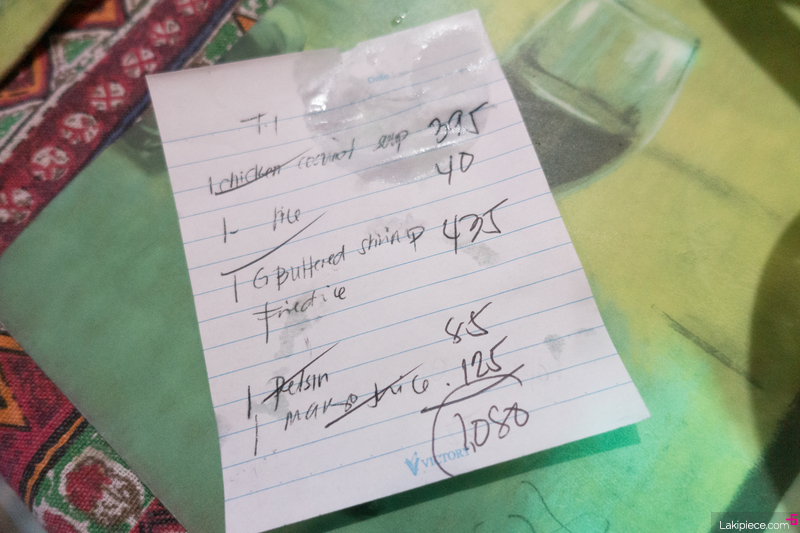 T.1
1 chicken coconut soup 395
1- rice 40
1 G Buttered shrimp 435
Friedrice
1 85
1 mango juice 125
1,080
VICTORY
Lakipiece.com